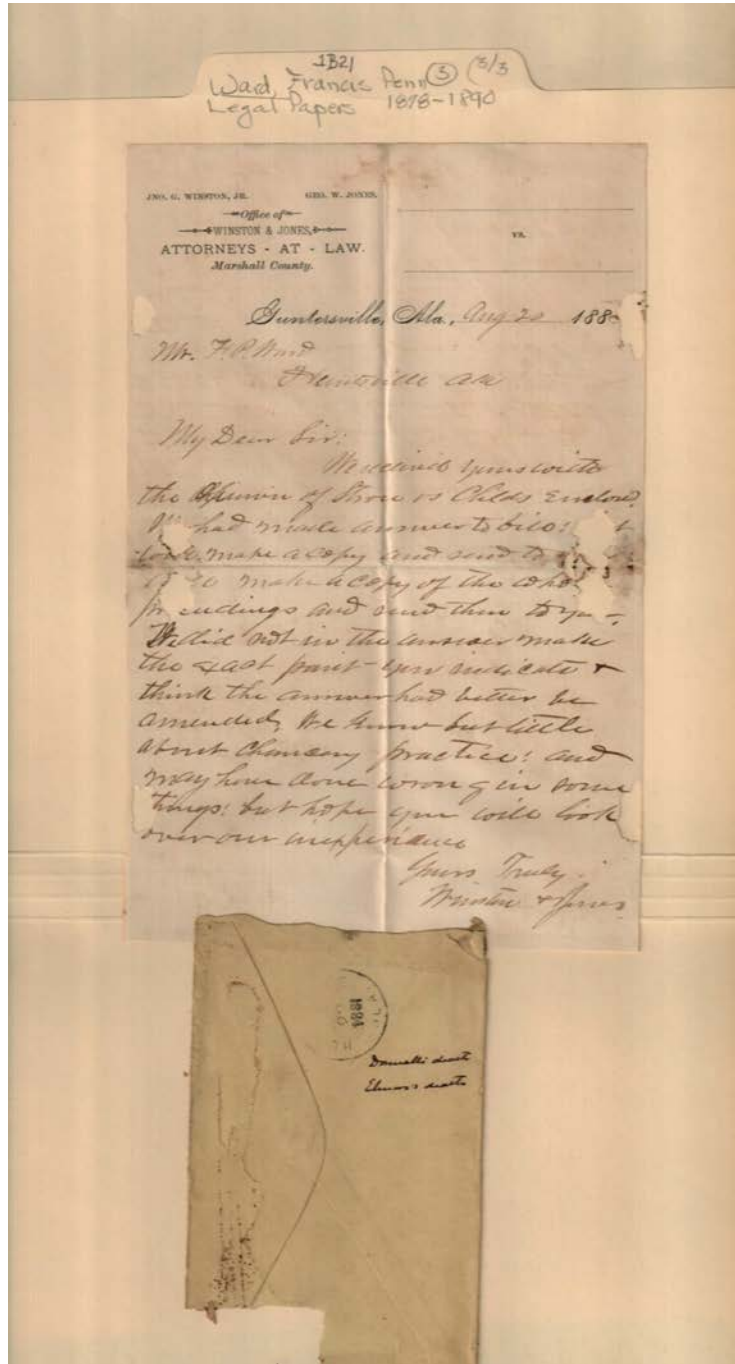 1B21
Ward, Francis Penn ③ (3/3
Legal Papers 1878-1890
JNO. G. WINSTON, JR. GEO. W. JONES.
Office of
WINSTON & JONES,
ATTORNEYS - AT - LAW.
Marshall County.
VS.
Guntersville, Ala., Aug 20 188
Mr. F. P. Ward
Huntsville Ala
My Dear Sir:
We received yours with
the Opinion of vs Childs Enclosed
had made answer to
make a copy and send to
to make a copy of the
and send them to
We did not in the answer make
the exact point you indicate &
think the answer had better be
amended, We know but little
about chancery practice: and
may have done wrong in some
things: but hope you will look
over our inexperience
Yours Truly
Winston & Jones
1884